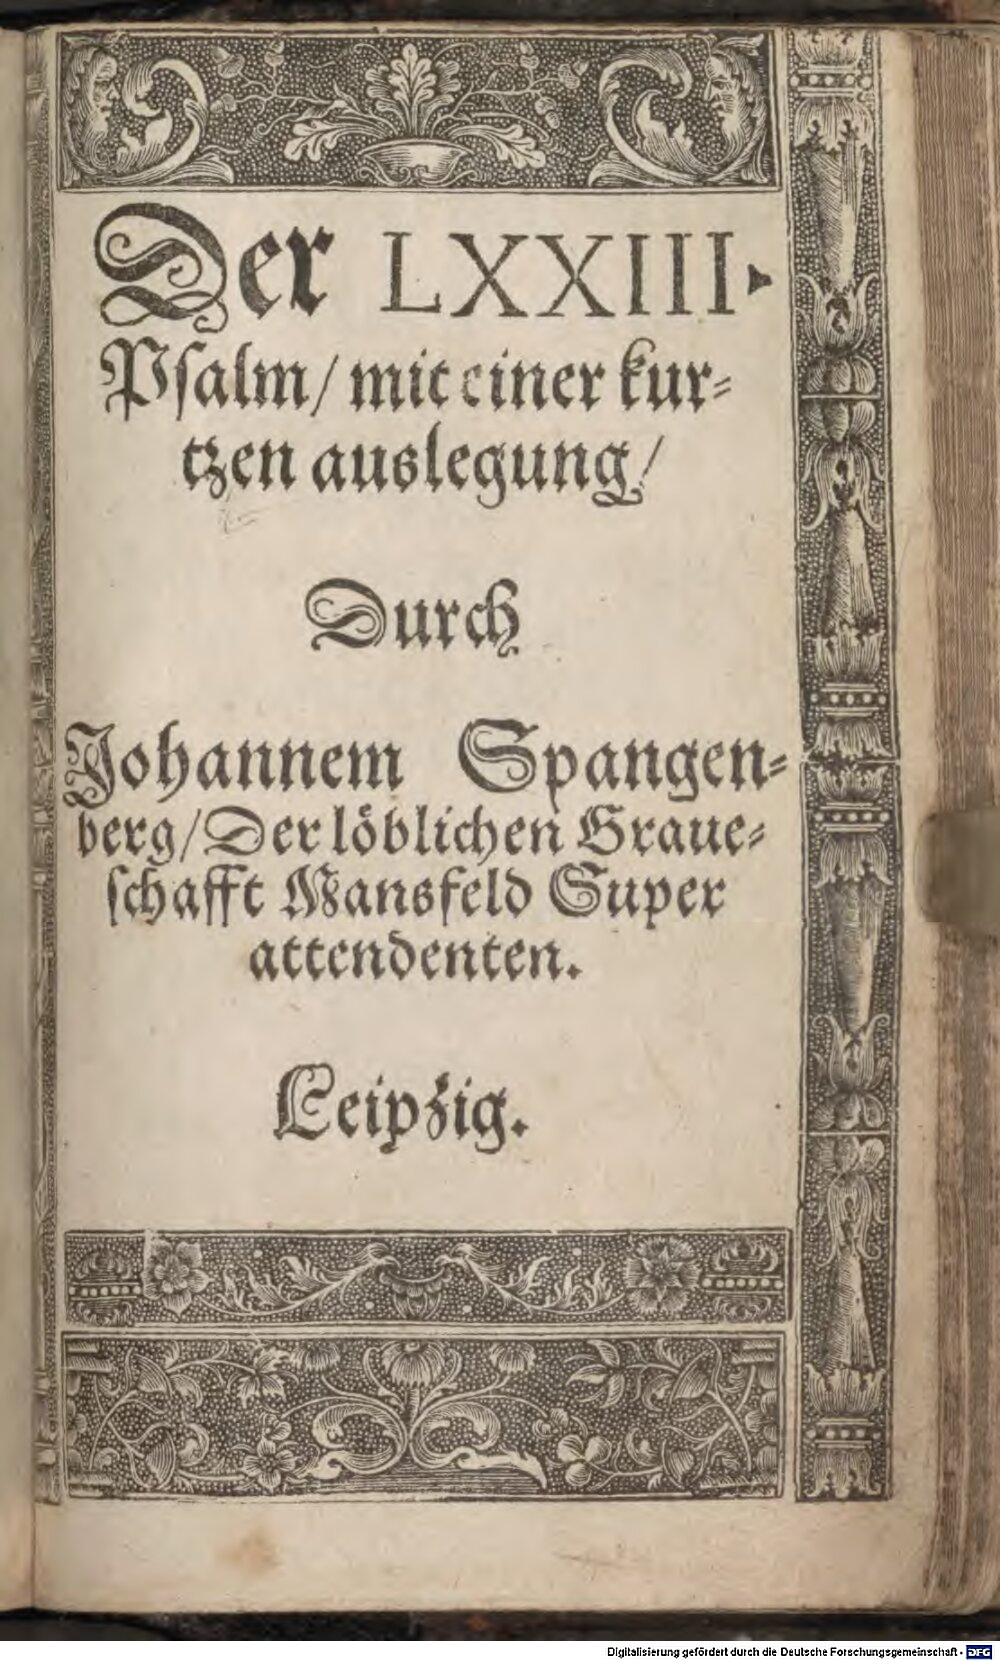 Der LXXIII.
Pſalm/ mit einer kur⸗
tzen auslegung/
Durch
Johannem Spangen⸗
berg/ Der löblichen Graue⸗
ſchafft Mansfeld Super
attendenten.
Leipzig.
Digitalisierung gefördert durch die Deutsche Forschungsgemeinschaft - DFG